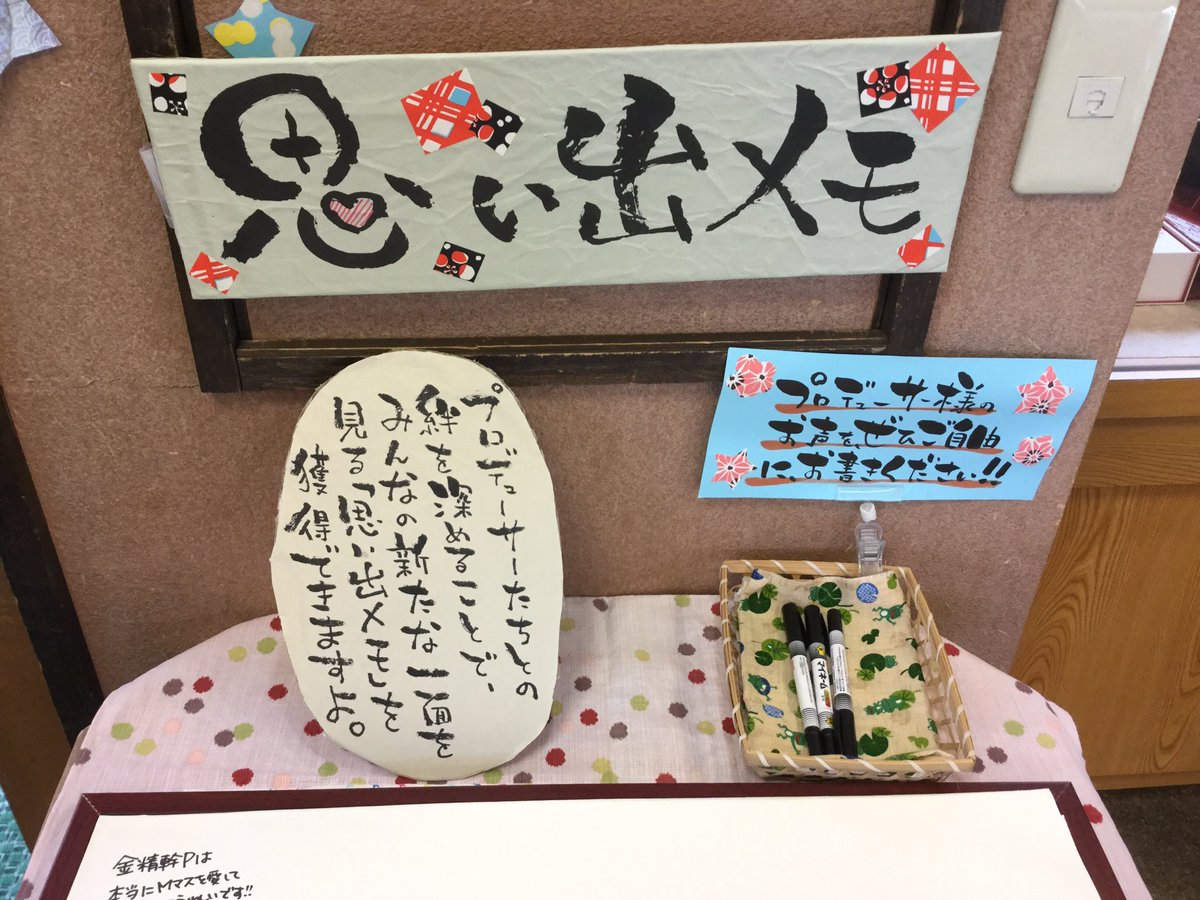 思い出メモ
プロデューサーたちとの
絆を深めることで、
みんなの新たな一面を
見る「思い出メモ」を
獲得できますよ。
プロデューサー様の
お声を、ぜひご自由
に、お書きください!!
マイネーム
金精幹Pは
本当にMマスを愛して
いです!!